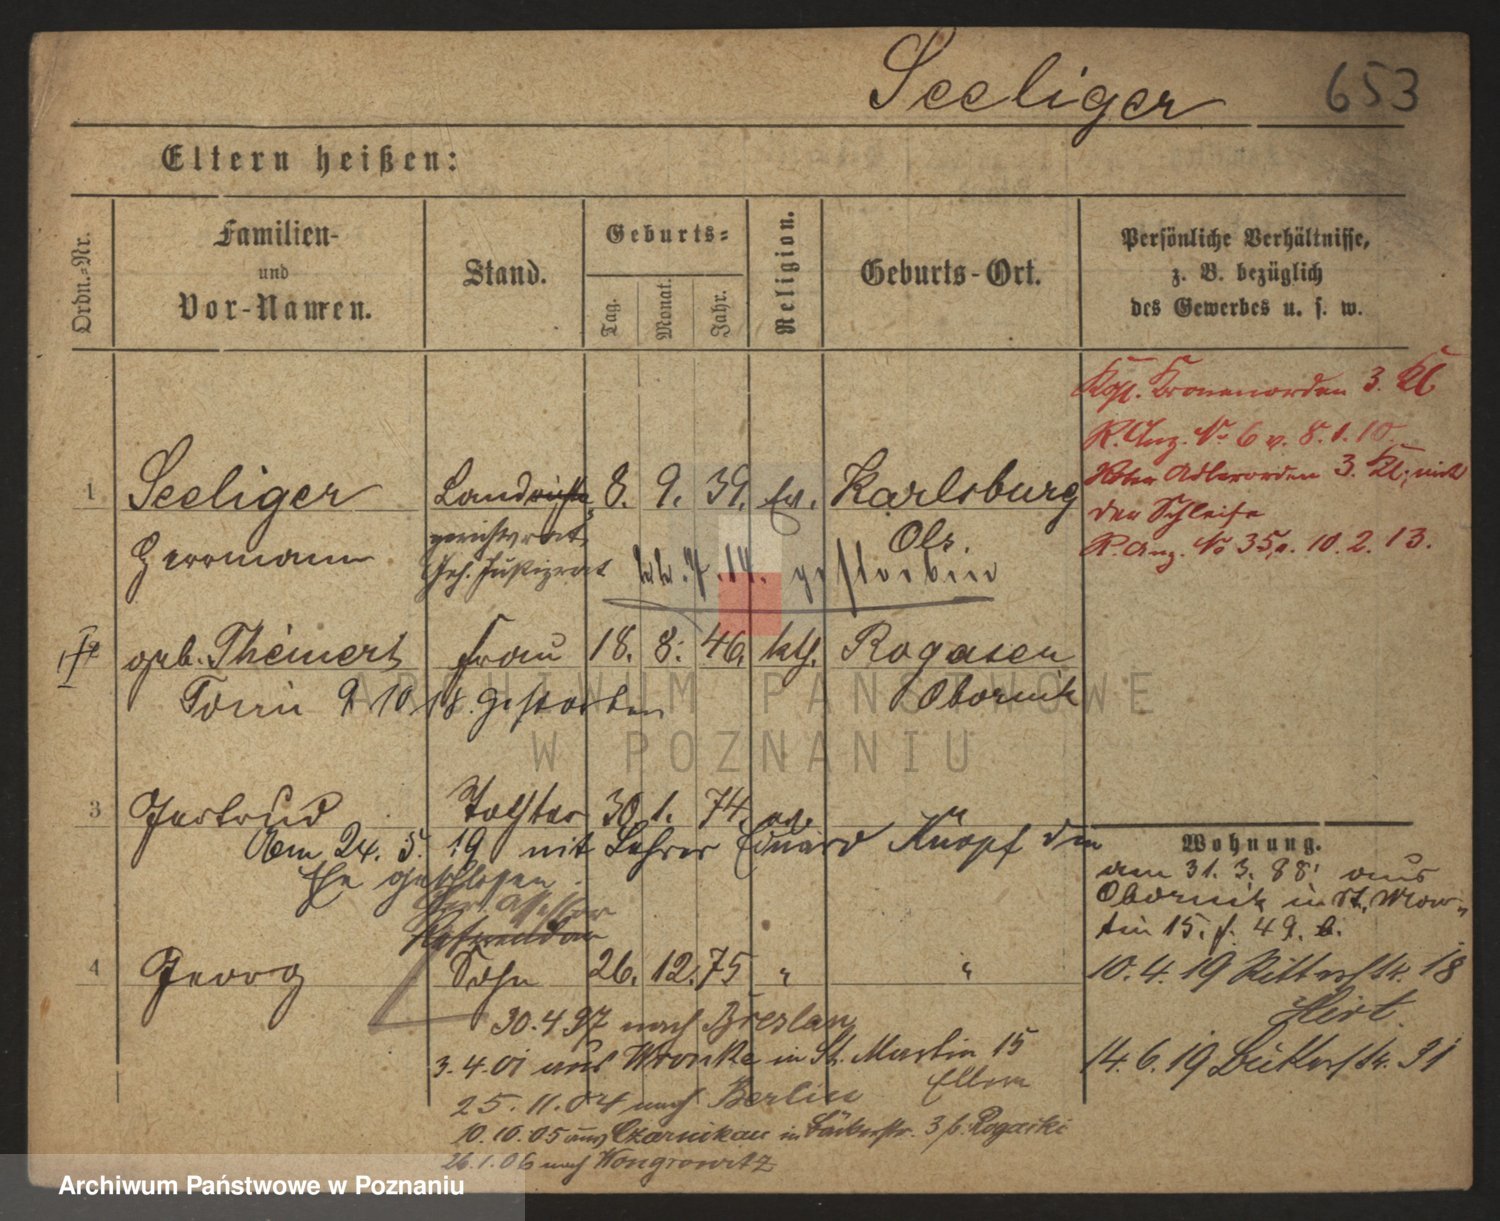 Seeliger 653
Eltern heißen:
Ordn.-Nr.
Familien-
und
Vor-Namen.
Stand.
Geburts-
Tag.
Monat.
Jahr.
Religion.
Geburts-Ort.
Persönliche Verhältnisse,
z. B. bezüglich
des Gewerbes u. s. w.
Kgl. Kronenorden 3. Kl
R. Anz. No 6 v. 8. 1. 10.
Roter Adlerorden 3. Kl. mit
der Schleife
R. Anz. No 35 v. 10. 2. 13.
1 Seeliger Land 8. 9. 39. ev. Karlsburg
Herrmann gerichtsrat Ols.
Geh. Justizrat 7. 14. gestorben
geb. Theinert Frau 18. 8. 46. kth. Rogasen
Toni 9 10 18. gestorben Obornik
3 Gertrud Tochter 30. 1. 74. ev.
Am 24. 5. 19 mit Lehrer Eduard Knopf die
Ehe geschlossen.
Ger. Assessor
Referendar
4 Georg Sohn 26. 12. 75 " "
30. 4 97 nach Breslau
3. 4. 01 aus Wronke in St. Martin 15
Eltern
25. 11. 04 nach Berlin
10. 10. 05 aus Czarnikau in 3 b. Rogacki
26. 1. 06 nach Wongrowitz
Wohnung.
am 31. 3. 88 aus
Obornik in St. Mar-
tin 15. f. 49. b.
10. 4. 19 Ritterstr. 18
Hirt.
14. 6. 19 31
ARCHIWUM PAŃSTWOWE
W POZNANIU
Archiwum Państwowe w Poznaniu